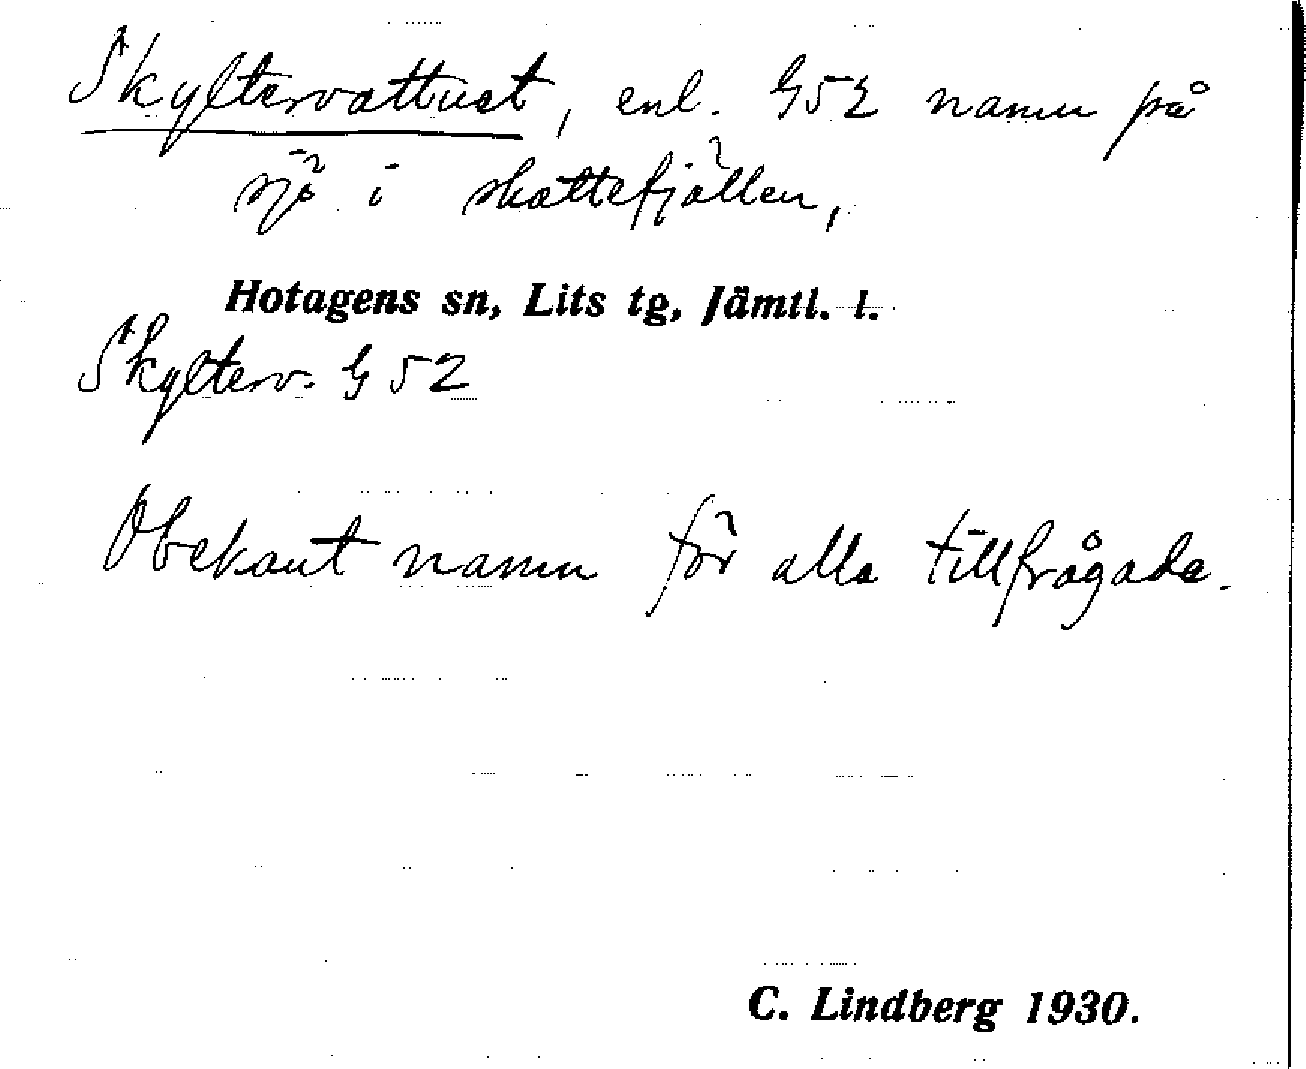 Skyltervattnet, enl. G52 namn på
sjö i skattefjällen,
Hotagens sn, Lits tg, Jämtl. l.
Skylterv. G 52
Obekant namn för alla tillfrågade.
C. Lindberg 1930.